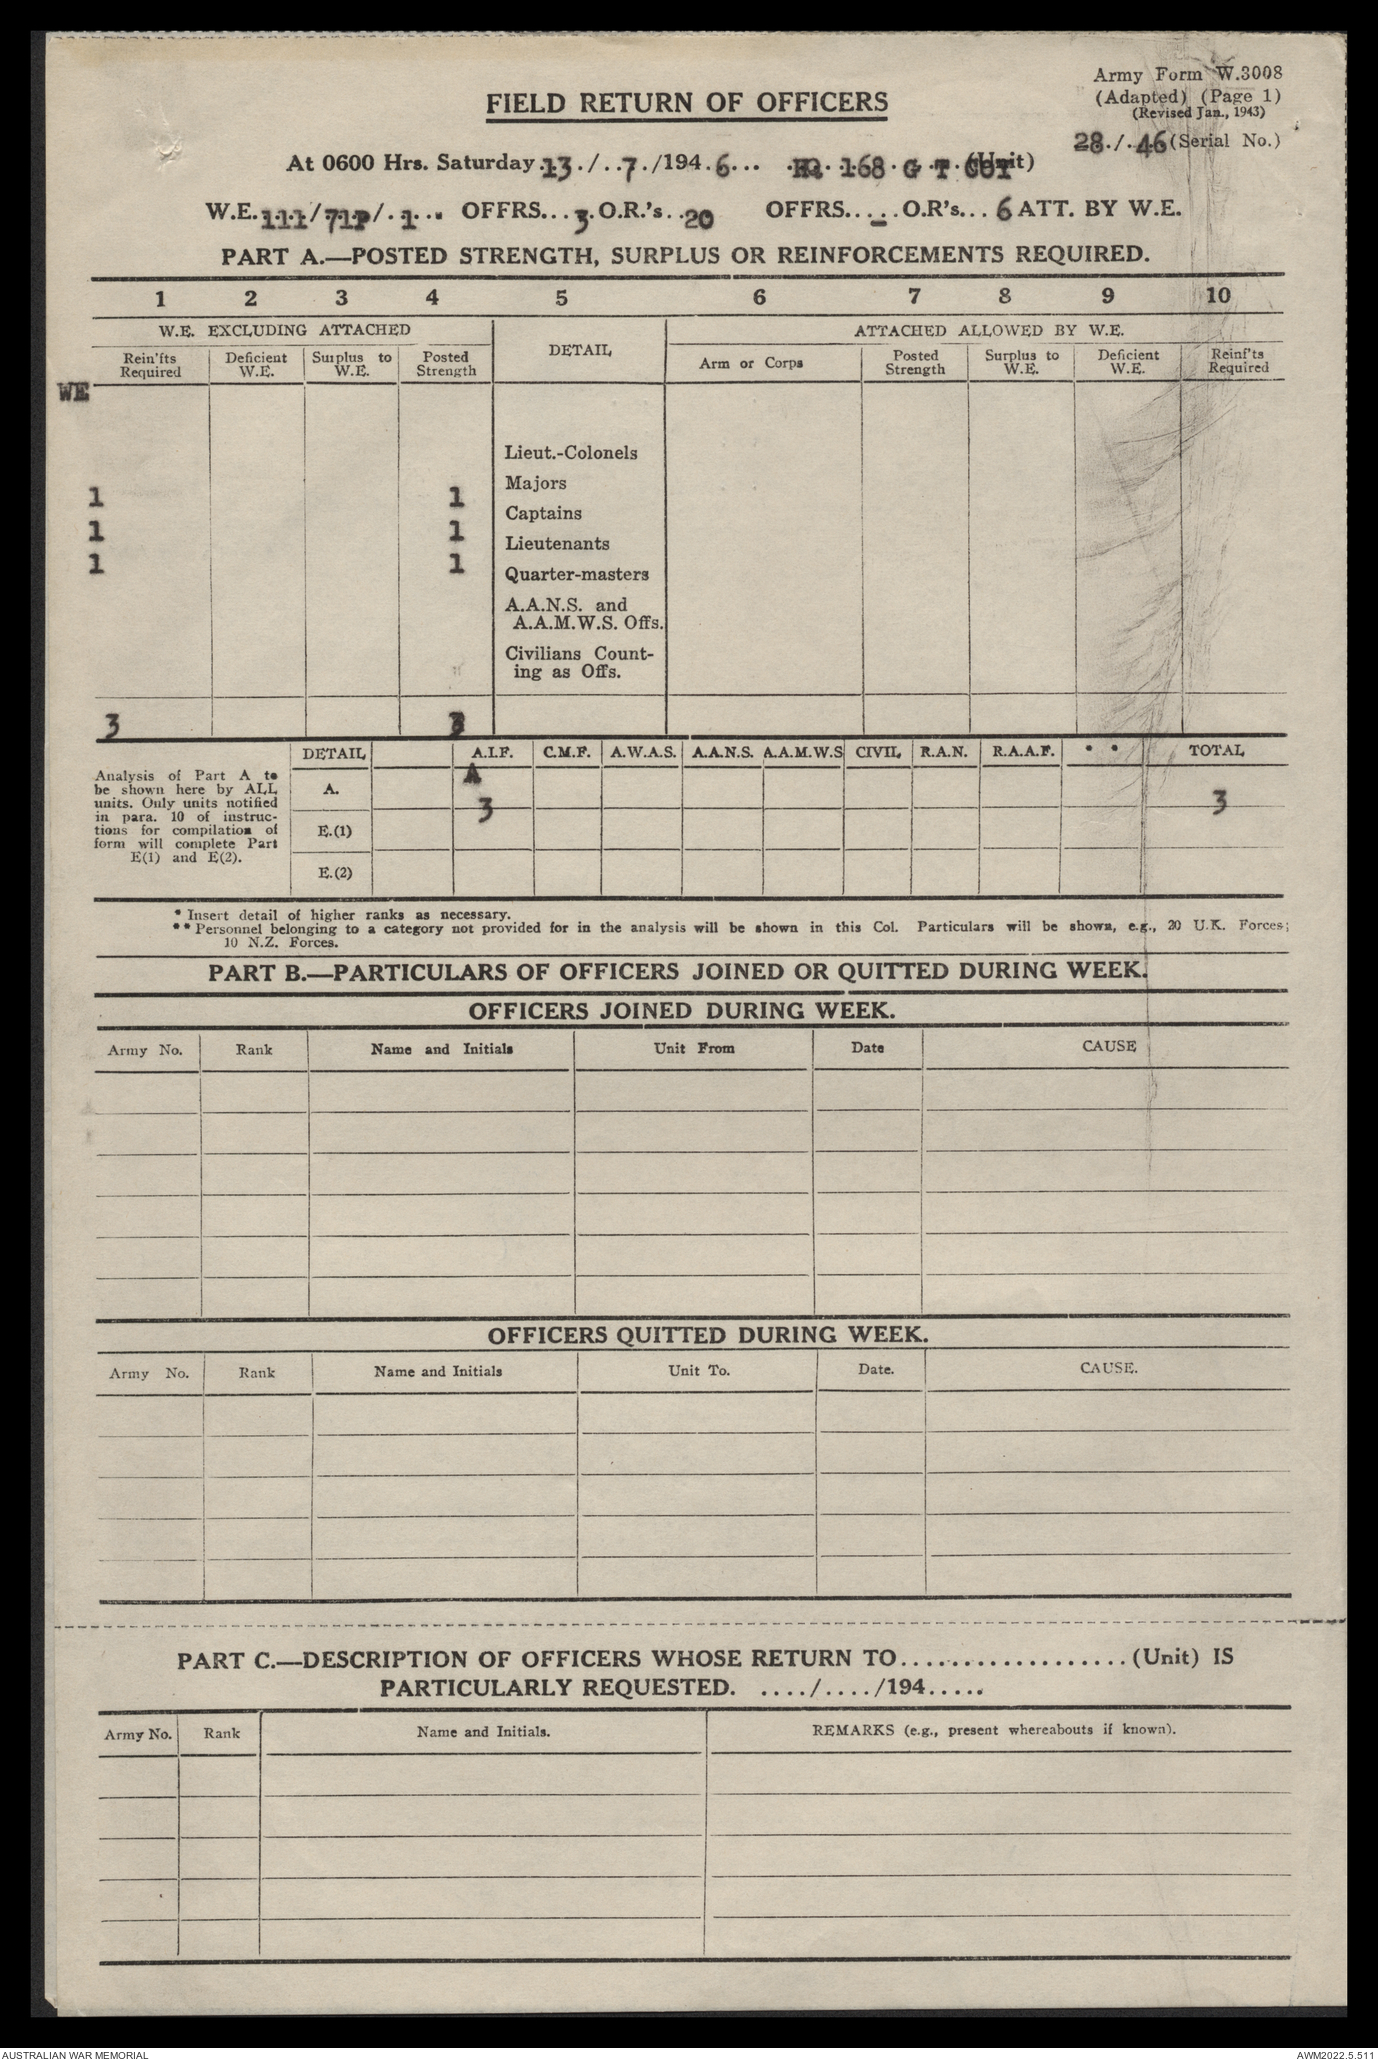 Army Form W.3008
(Adapted) (Page 1)
(Revised Jan., 1943)
FIELD RETURN OF OFFICERS
28./.46 (Serial No.)
At 0600 Hrs. Saturday 13./..7./194.6... HQ 168 G T COY (Unit)
W.E. 111/71P/.1... OFFRS...3. O.R.'s..20 OFFRS...-. O.R's...6 ATT. BY W.E.
PART A.—POSTED STRENGTH, SURPLUS OR REINFORCEMENTS REQUIRED.
1 2 3 4 5 6 7 8 9 10
W.E. EXCLUDING ATTACHED DETAIL ATTACHED ALLOWED BY W.E.
Rein'fts Required Deficient W.E. Surplus to W.E. Posted Strength Arm or Corps Posted Strength Surplus to W.E. Deficient W.E. Reinf'ts Required
WE
Lieut.-Colonels
Majors
1 1
Captains
1 1
Lieutenants
1 1
Quarter-masters
A.A.N.S. and
A.A.M.W.S. Offs.
Civilians Count-
ing as Offs.
3 3
DETAIL A.I.F. C.M.F. A.W.A.S. A.A.N.S. A.A.M.W.S CIVIL R.A.N. R.A.A.F. * * TOTAL
Analysis of Part A to
be shown here by ALL
units. Only units notified
in para. 10 of instruc-
tions for compilation of
form will complete Part
E(1) and E(2).
A. A
3 3
E.(1)
E.(2)
* Insert detail of higher ranks as necessary.
** Personnel belonging to a category not provided for in the analysis will be shown in this Col. Particulars will be shown, e.g., 20 U.K. Forces;
10 N.Z. Forces.
PART B.—PARTICULARS OF OFFICERS JOINED OR QUITTED DURING WEEK.
OFFICERS JOINED DURING WEEK.
Army No. Rank Name and Initials Unit From Date CAUSE
OFFICERS QUITTED DURING WEEK.
Army No. Rank Name and Initials Unit To. Date. CAUSE.
PART C.—DESCRIPTION OF OFFICERS WHOSE RETURN TO................... (Unit) IS
PARTICULARLY REQUESTED. ..../..../194.....
Army No. Rank Name and Initials. REMARKS (e.g., present whereabouts if known).
AUSTRALIAN WAR MEMORIAL AWM2022.5.511